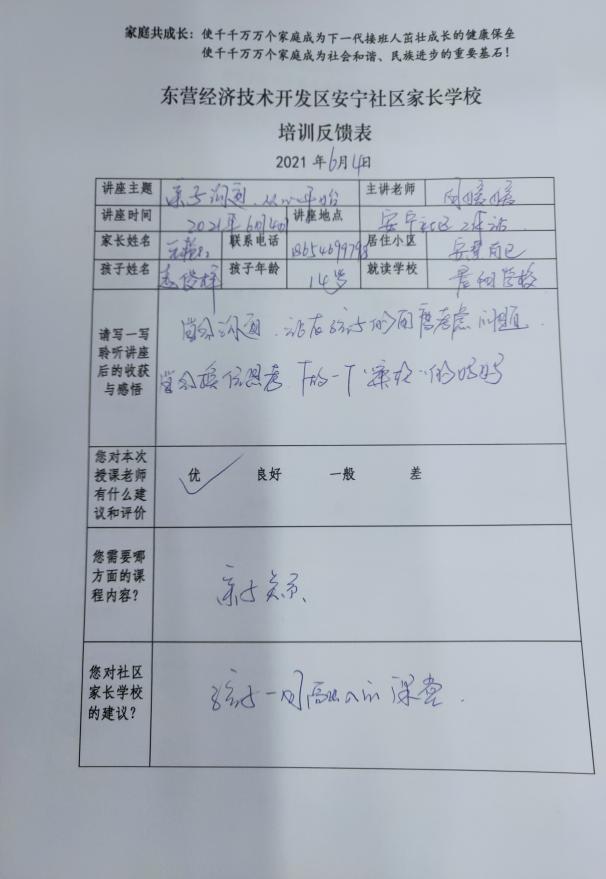 家庭共成长：使千千万万个家庭成为下一代接班人茁壮成长的健康保垒
使千千万万个家庭成为社会和谐、民族进步的重要基石！
东营经济技术开发区安宁社区家长学校
培训反馈表
2021年6月4日
讲座主题 亲子沟通，从心开始 主讲老师
讲座时间 2021年6月4日 讲座地点 安宁社区
家长姓名 联系电话 居住小区
孩子姓名 孩子年龄 14岁 就读学校 学校
请写一写聆听讲座后的收获与感悟
学会沟通，站在孩子的角度考虑问题．
学会换位思考
您对本次授课老师有什么建议和评价 优 良好 一般 差
您需要哪方面的课程内容？ 亲子关系、
您对社区家长学校的建议？ 孩子一同 课堂．